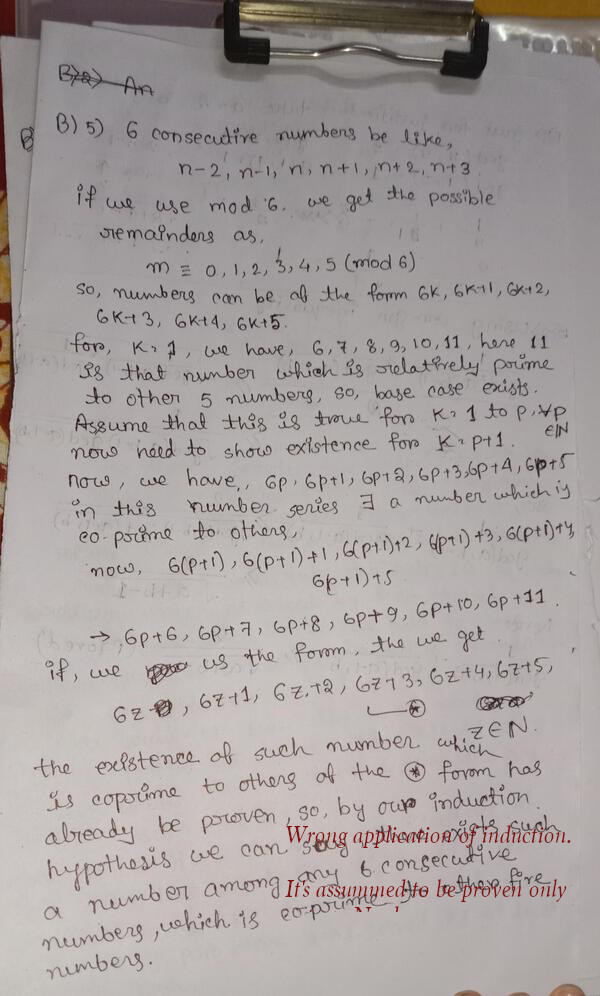 B)2) An
B) 5) 6 consecutive numbers be like,
n-2, n-1, n, n+1, n+2, n+3
if we use mod 6. we get the possible
remainders as,
m ≡ 0, 1, 2, 3, 4, 5 (mod 6)
so, numbers can be of the form 6K, 6K+1, 6K+2,
6K+3, 6K+4, 6K+5.
for, K=1, we have, 6, 7, 8, 9, 10, 11, here 11
is that number which is relatively prime
to other 5 numbers, so, base case exists.
Assume that this is true for K=1 to p, ∀p
∈N
now need to show existence for K=p+1.
now, we have, 6p, 6p+1, 6p+2, 6p+3, 6p+4, 6p+5
in this number series ∃ a number which is
co-prime to others,
now, 6(p+1), 6(p+1)+1, 6(p+1)+2, 6(p+1)+3, 6(p+1)+4,
6(p+1)+5
→, 6p+6, 6p+7, 6p+8, 6p+9, 6p+10, 6p+11.
if, we us the form, the we get.
6z, 6z+1, 6z+2, 6z+3, 6z+4, 6z+5,
⊛ z∈N.
the existence of such number which
is coprime to others of the ⊛ form has
already be proven, so, by our induction.
Wrong application of induction.
hypothesis we can say there exists such
a number among any 6 consecutive
It's assummed to be proven only
numbers, which is co-prime to other five
numbers.